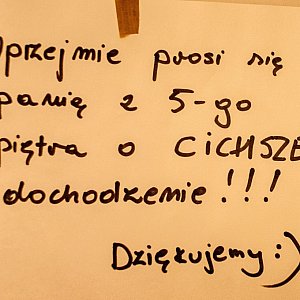 Uprzejmie prosi się
panią z 5-go
piętra o CICHSZE
dochodzenie!!!
Dziękujemy :)